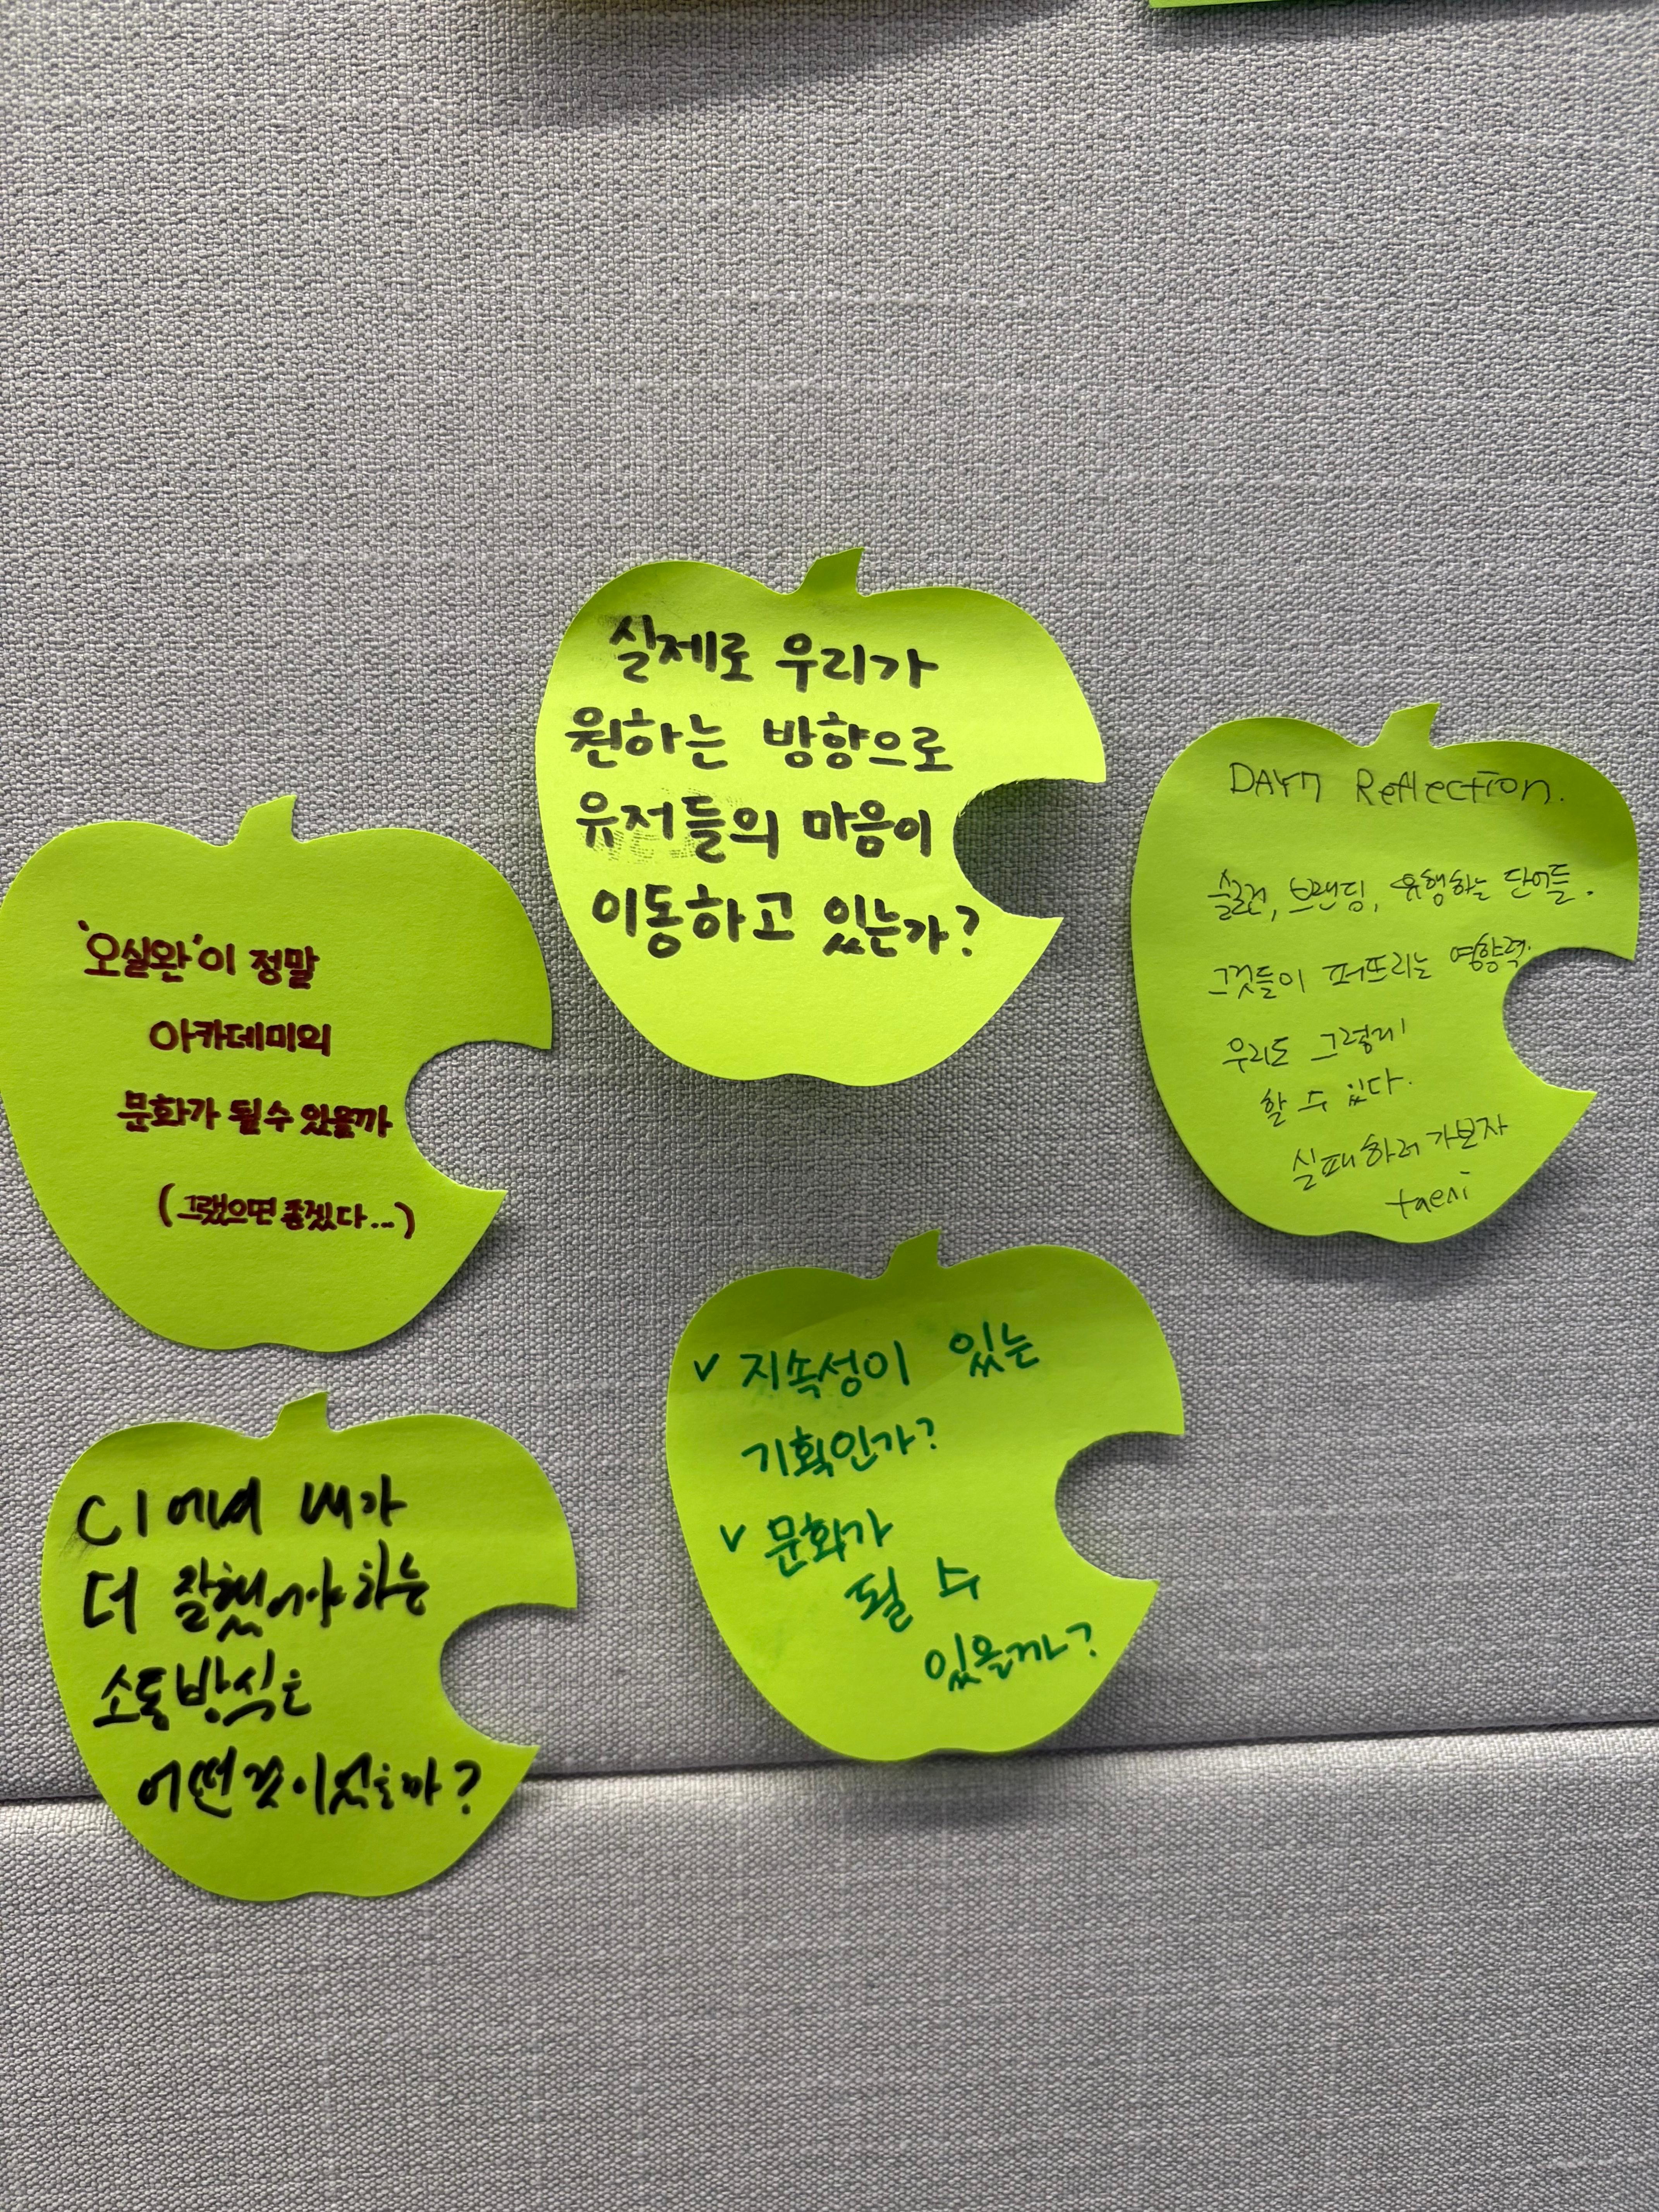 실제로 우리가
원하는 방향으로
유저들의 마음이
이동하고 있는가?
DAY7 Reflection.
슬로건, 브랜딩, 유행하는 단어들.
그것들이 퍼뜨리는 영향력.
우리도 그렇게
할 수 있다.
실패하러 가보자
taeni
'오실완'이 정말
아카데미의
문화가 될 수 있을까
(그랬으면 좋겠다...)
✓ 지속성이 있는
기획인가?
✓ 문화가
될 수
있을까?
C1에서 내가
더 잘했어야 하는
소통방식은
어떤것이었을까?